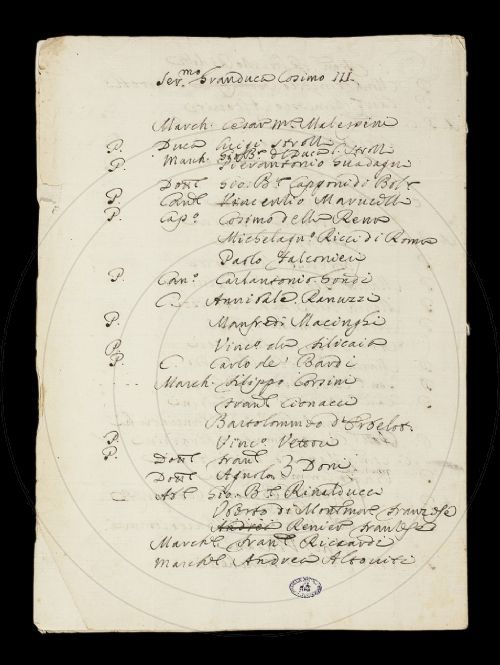 Ser.mo Granduca Cosimo III.
March. Cesar M.a Malespini
P. Duca Luigi Strozzi
March. Gio: B.a di Duca L. Strozzi
P. Pierantonio Guadagni
Dott. Gio: B.a Capponi di Bal
P. Cav. Vincenzio Marucelli
P. Cap.o Cosimo della Rena
Michelagn.o Ricci di Roma
Paolo Falconieri
P. Can.o Carlantonio Gondi
C. Annibale Ranuzzi
P. Manfredi Macinghi
P. Vinc.o da Filicaia
P. C Carlo de' Bardi
March. Filippo Corsini
Fran.c Cionacci
Bartolommeo d'Erbelot.
P. Vinc.o Vettori
P. Dott. Fran.c
Dott. Agnolo } Doni
Gio: B.a Rinalducci
Uberto di Montmor franzese
Andrea Renier franzese
March. Fran.c Riccardi
March. Andrea Altoviti